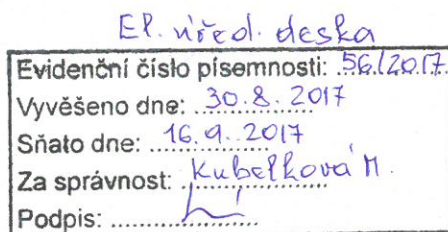 El. úřed. deska
Evidenční číslo písemnosti: 56/2017
Vyvěšeno dne: 30.8.2017
Sňato dne: 16.9.2017
Za správnost: Kubelková M.
Podpis: